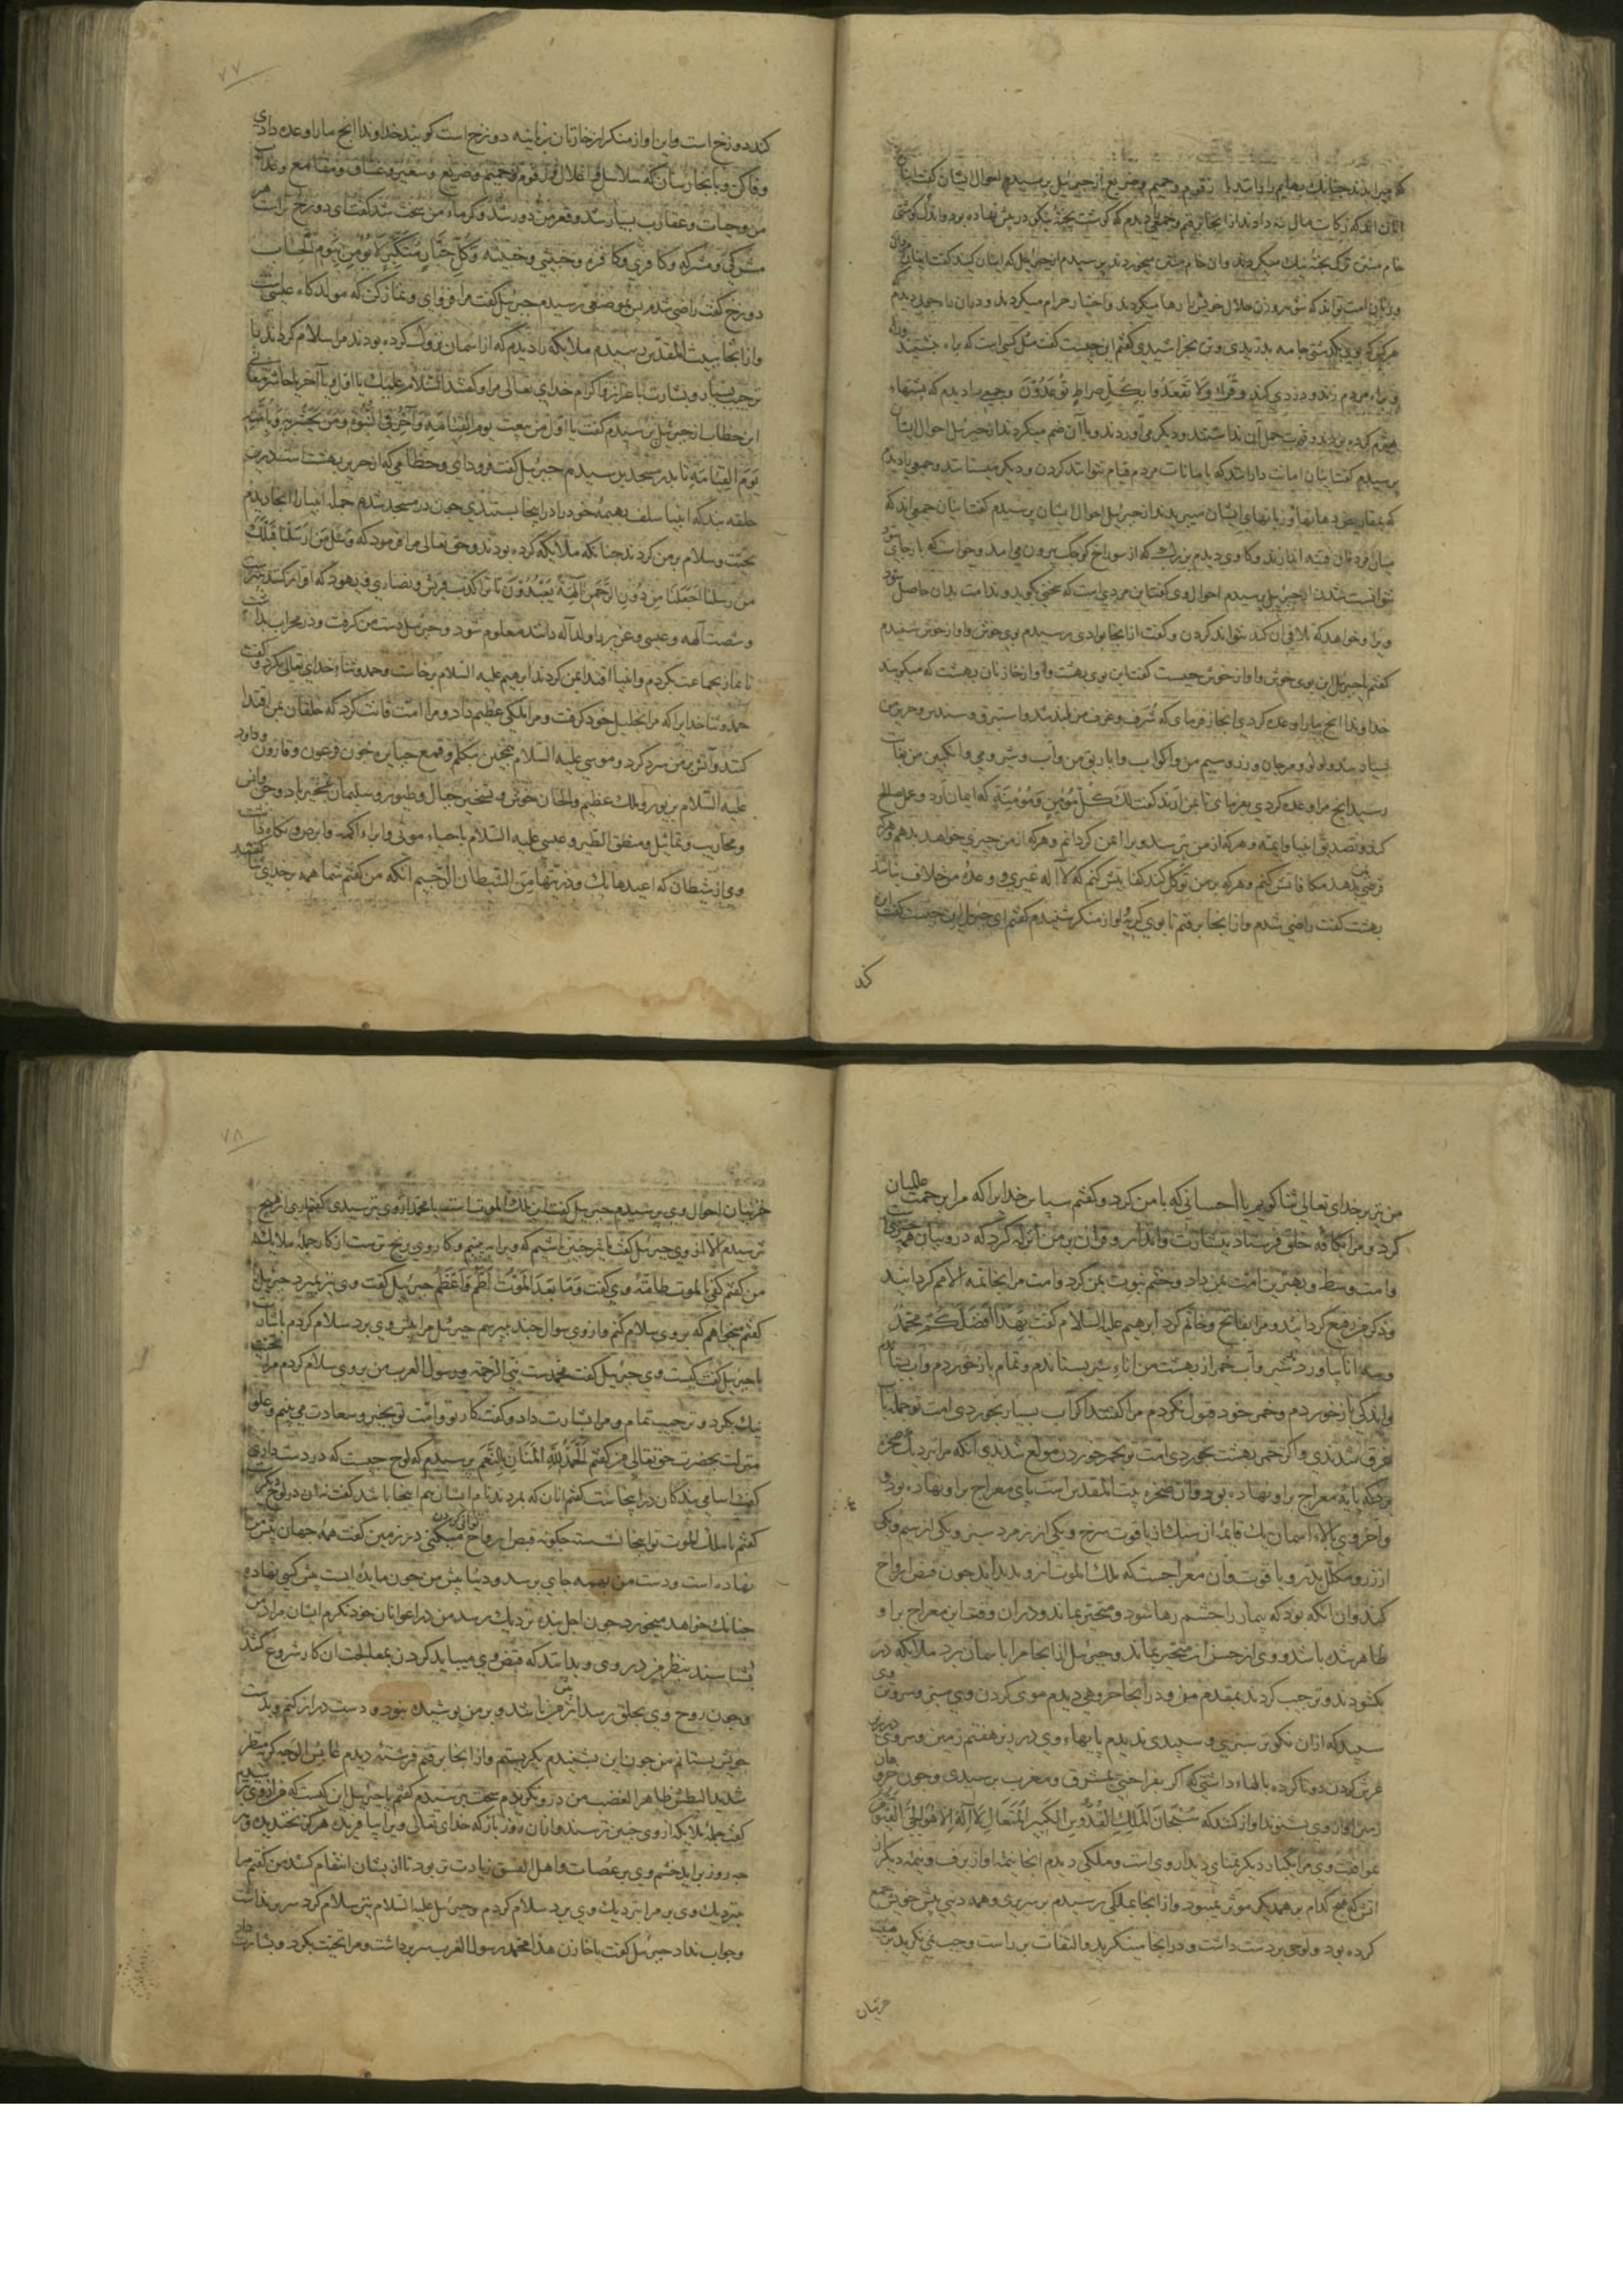 که چرا بدند چنانک بهایم را باشد با زقوم و حمیم و ضریع از جبرئیل پرسیدم احوال ایشان گفت اینان
آنان اند که زکات مال نه دادند از انجا برفتم و جمعی دیدم که گوشت پخته نیکو در پیش نهاده بود و اندک گوشتی
خام منتن ترک پخته نیک میکردند وان خام منتن میخوردند پرسیدم از جبرئیل که اینان کیند گفت اینان مردان
و زنانی امت تواند که شوهر و زن حلال خویش را رها میکردند و اختیار حرام میکردند
هرکه بدیگذشتی جامه بدریدی و تن بخراشیدی گفتم این چیست گفت مثل کسی است که براه بنشیند
و براه مردم زند و دزدی کند و قرأ وَلَا تَقْعُدُوا بِكُلِّ صِرَاطٍ تُوعِدُونَ و جمعی را دیدم که پشتهاء
هیزم کرده بودند و قوت حمل آن نداشتند و دیگر می آوردند و با آن ضم میکردند از جبرئیل احوال ایشان
پرسیدم گفت اینان امانت دارانند که با مانات مردم قیام نتوانند کردن و دیگر میستانند و جمعی را دیدم
که بمقاریض دهانها و زبانهای ایشان میبریدند از جبرئیل احوال ایشان پرسیدم گفت اینان جمعی اند که
میان مردمان فتنه اندازند و گاوی دیدم بزرگ که از سوراخ کوچک بیرون می امد و خواست که باز جای شود
نتوانست شدن از جبرئیل پرسیدم احوال وی گفت این مردی است که سخنی گوید و ندامت بدان حاصل شود
ویرا و خواهد که تلافی آن کند نتواند کردن و گفت از انجا بوادی رسیدم بوی خوش و اواز خوش شنیدم
گفتم یا جبرئیل این بوی خوش و اواز خوش چیست گفت این بوی بهشت و اواز خازنان بهشت که میگویند
خداوندا انچ مارا وعده کردی انجاز فرمای که شرف و غرف من بلند شد و استبرق و سندس و حریر من
بسیار شد و لولو و مرجان و زر و سیم من و اکواب و اباریق من و اب و شیر و می و انگبین من بغایت
رسید انچ مرا وعده کردی بفرمای تا بمن آرند گفت لک کل مؤمن و مؤمنة که ایمان اورد و عمل صالح
کند و تصدیق انبیا و ایمه و هرکه از من بترسد ویرا ایمن گردانم و هرکه از من چیزی خواهد بدهم و هرکه
قرض بدهد مکافاتش کنم و هرکه بر من توکل کند کفایتش کنم که لا اله غیری و وعده من خلاف نباشد
بهشت گفت راضی شدم و از انجا برفتم تا بوی کریه و اواز منکر شنیدم گفتم ای جبرئیل این چیست گفت این
کند
۷۷
کند دوزخ است و این اواز منکر از خازنان زبانیه دوزخ است گویند خداوندا انچ مارا وعده دادی
وفا کن و بانجاز رسان که سلاسل و اغلال و زقوم و حمیم و ضریع و سعیر و غساق و مقامع و عذاب
من و حیات و عقارب بسیار شد و قعر من دور شد و گرماء من سخت شد گفت ای دوزخ تراست هر
مشرکی و مشرکه و کافری و کافره و خبیثی و خبیثه وَكُلِّ جَبَّارٍ مُتَكَبِّرٍ لَا يُؤْمِنُ بِيَوْمِ الْحِسَابِ
دوزخ گفت راضی شدم پس بموضعی رسیدم جبرئیل گفت مرا فرود ای و نماز کن که مولدگاه عیسی است
و از انجا ببیت المقدس رسیدم ملایکه را دیدم که از اسمان نزول کرده بودند مرا سلام کردند با
ترحیب بسیار و بشارت با عزاز و اکرام خدای تعالی مرا و گفتند السلام علیک یا اول یا آخر یا حاشر معنی
این خطاب از جبرئیل پرسیدم گفت یا اول من یبعث یوم القیامة و آخر فی النبوة و من یحشر به و بامته
یوم القیامة تا بدر مسجدین رسیدم جبرئیل گفت فرود ای و خطامی که از حریر بهشت است در
حلقه بند که انبیا سلف بهیمه خود را در اینجا بستندی چون در مسجد شدم جمله انبیا را انجا دیدم
تحیت و سلام بر من کردند چنانکه ملایکه کرده بودند و حق تعالی مرا فرمود که وَسْئَلْ مَنْ أَرْسَلْنَا قَبْلَكَ
مِنْ رُسُلِنَا أَجَعَلْنَا مِنْ دُونِ الرَّحْمَنِ آلِهَةً يُعْبَدُونَ تا کذب قریش و نصاری و یهود که
و شصت آلهه و عیسی و عزیر را ولد اله دانند معلوم شود و جبرئیل دست من گرفت و در محراب بداشت
تا نماز بجماعت بکردم و انبیا اقتدا بمن کردند ابرهیم علیه السلام برخاست و حمد و ثناء خدای تعالی بکرد و گفت
حمد و ثنا خدایرا که مرا بخلیل خود گرفت و مرا ملکی عظیم داد و مرا امت قانت کرد که خلقان بمن اقتدا
کنند و آتش بر من سرد کرد و موسی علیه السلام همچنین بتکلم و قمع جبابره چون فرعون و قارون و داود
علیه السلام بزبور و ملک عظیم و الحان خوش و تسخیر جبال و طیور و سلیمان بتسخیر باد و جن و انس
و محاریب و تماثیل و منطق الطیر و عیسی علیه السلام باحیاء موتی و ابراء اکمه و ابرص و نگاه داشت
وی از شیطان که اعیدها بک و ذریتها من الشیطان الرجیم انگه من گفتم شما همه بر خدای ثنا گفتید
من نیز بر خدای تعالی ثنا گویم با احسانی که با من کرد و گفتم سپاس خدایرا که مرا برحمت عالمیان
کرد و مرا بکافه خلق فرستاد ببشارت و انذار و قران بر من انزله کرد که درو بیان همه چیزی است
و امت وسط و بهترین امت بمن داد و ختم نبوت بمن کرد و امت مرا بخاتمه الامم گردانید
و ذکر من رفیع گردانید و مرا بفاتح و خاتم کرد ابرهیم علیه السلام گفت بهذا أفضلكم محمد
و سه انا بیاورد شیر و آب و خمر از بهشت من اناء شیر بستاندم و تمام باز خوردم و اب بستاندم
و اندکی باز خوردم و خمر خود قبول نکردم مرا گفتند اگر اب بسیار بخوردی امت تو جمله با
غرق شدندی و اگر خمر بهشت بخوردی امت تو بخمر خوردن مولع شدندی انگه مرا نزدیک صخره
برد که پایه معراج براو نهاده بود و آن صخره بیت المقدس است پای معراج براو نهاده بود و
و اخر وی بالاء اسمان یک قایمه از سنک از یاقوت سرخ و یکی از زمرد سبز و یکی از سیم و یکی
از زر و مکلل بدر و یاقوت و ان معراجیست که ملک الموت ازو بدید اید چون قبض ارواح
کند و ان انگه بود که بیمار را چشم رها شود و متحیر بماند و دران وقت این معراج براو
ظاهر شده باشد و وی از حسن ان متحیر بماند و جبرئیل از انجا مرا باسمان برد ملایکه در
بکشودند و ترحیب کردند بمقدم من و در انجا خروهی دیدم موی گردن وی سبز و سر و تن وی
سپید که ازان نکوتر سبزی و سپیدی ندیدم پایهاء وی در زیر هفتم زمین و سر وی در زیر
عرش گردن دوتا کرده بالهاء داشتی که اگر بفراختی بمشرق و مغرب برسیدی و چون خروهان
زمین اواز وی بشنوند اواز کنند که سُبْحَانَ الْمَلِكِ الْقُدُّوسِ الْكَبِيرِ الْمُتَعَالِ لَا إِلَهَ إِلَّا هُوَ الْحَيُّ الْقَيُّومُ
موافقت وی مرا یکبار دیگر تمنای دیدار وی است و ملکی دیدم انجا نیمه او از برف و نیمه دیگر از
اتش که هیچ کدام بر همدیگر موثر نمیبود و از انجا بملکی رسیدم بر سریری و همه دنیی پیش خویش جمع
کرده بود و لوحی بر دست داشت و در انجا مینگرید و التفات بر راست و چپ نمی نگرید بر هیئت
حزینان
۷۸
حزینان احوال وی پرسیدم جبرئیل گفت این ملک الموت است یا محمد ازوی بترسیدی گفتم اری از هیچ
نترسیدم الا ازوی جبرئیل گفت ما نیز چنین باشیم که ویرا ببینیم و کار وی برنج ترست از کار جمله ملایکه
من گفتم کفی بالموت طامة وی گفت وَمَا بَعْدَ الْمَوْتِ أَطَمُّ وَأَعْظَمُ جبرئیل گفت وی نیز بمیرد جبرئیل را
گفتم میخواهم که بر وی سلام کنم و ازوی سوال چند بپرسم جبرئیل مرا پیش وی برد سلام کردم باشارت
با جبرئیل گفت کیست وی جبرئیل گفت محمدست نبی الرحمة و رسول العرب من بر وی سلام کردم مرا تحیت
نیک بکرد و ترحیب تمام و مرا بشارت داد و گفت کار تو و امت تو بخیر و سعادت می بینم و علو
منزلت بحضرت حق تعالی من گفتم الْحَمْدُ لِلَّهِ الْمَنَّانِ بِالنِّعَمِ پرسیدم که لوح چیست که در دست داری
گفت اسامی بندگان در اینجاست گفتم انان که بمردند نام ایشان هم اینجا باشد گفت نه ان در لوح دیگرست
گفتم یا ملک الموت تو اینجا نشسته چگونه قبض ارواح توانی کردن میکنی در زمین گفت همه جهان پیش من
نهاده است و دست من بهمه جای برسد و دنیا پیش من چون مایده ایست پیش کسی نهاده
چنانک خواهد میخورد چون اجل بنده نزدیک رسد من در اعوانان خود نگرم ایشان مراد من
بشناسند بنظر من در وی و بدانند که قبض وی میباید کردن بمعالجت ان کار شروع کنند
و چون روح وی بحلق رسد از من باشد و بر من پوشیده نبود و دست دراز کنم و بدست
خویش بستانم من چون این بشنیدم بگریستم و از انجا برفتم فرشته دیدم عابس الوجه کریه منظر
شدید البطش ظاهر الغضب من درو نگریدم سخت بترسیدم گفتم یا جبرئیل این کیست که مرا ازوی ترسیدم
گفت جمله ملایکه ازوی چنین ترسند و ازان روز باز که خدای تعالی ویرا بیافریده هرگز نخندیده و هر
چه روز براید خشم وی بر عصات و اهل الفسق زیادت تر بود تا از ایشان انتقام کشد من گفتم مرا
بنزدیک وی بر مرا نزدیک وی برد سلام کردم و جبرئیل علیه السلام نیز سلام کرد سر برنداشت
و جواب نداد جبرئیل گفت یا خازن هذا محمد رسول العرب سر برداشت و مرا تحیت بکرد و بشارت داد